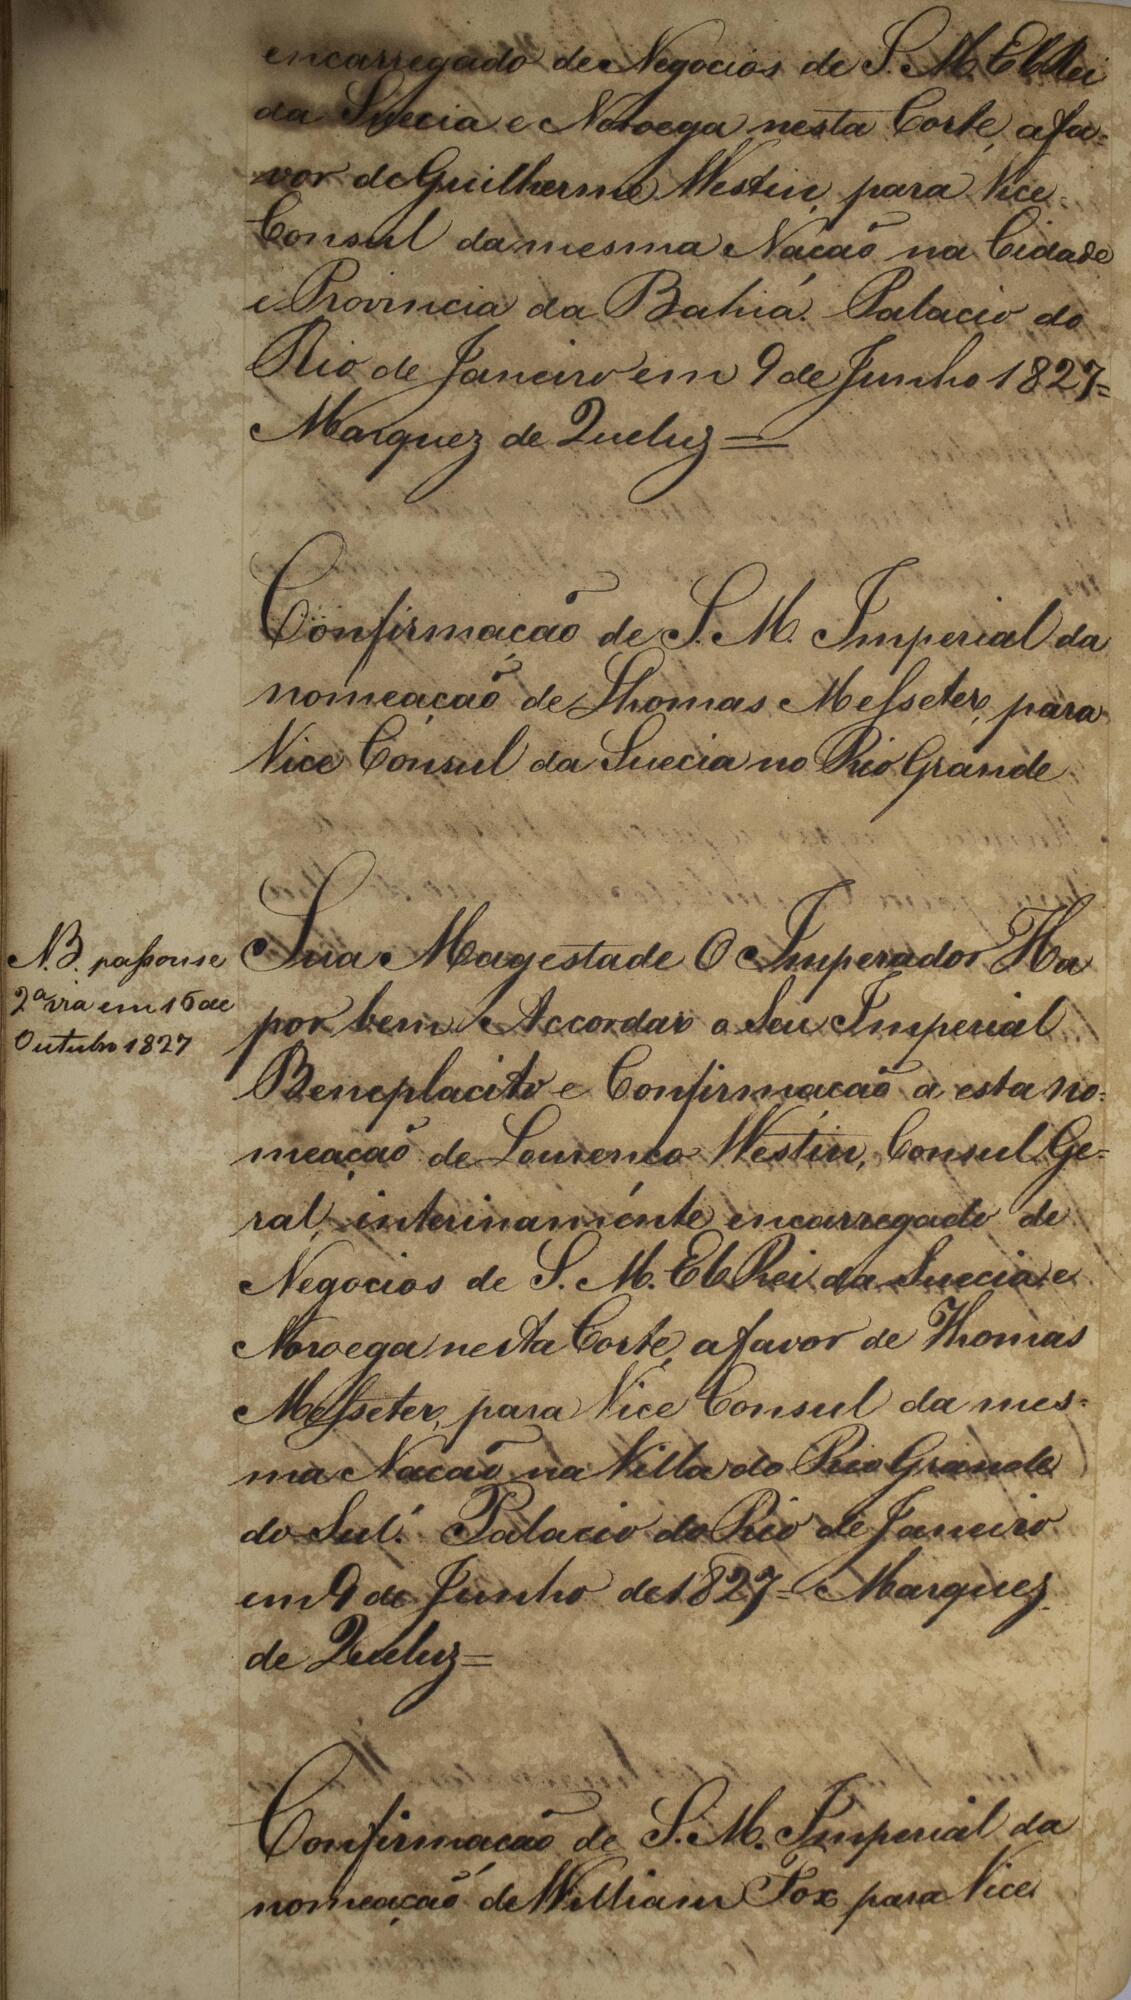 encarregado de Negocios de S. M. El Rei
da Suecia e Noroega nesta Corte, a fa-
vor de Guilherme Westin, para Vice
Consul da mesma Nacaõ na Cidade
e Provincia da Bahiá. Palacio do
Rio de Janeiro em 9 de Junho 1827=
Marquez de Queluz=
Confirmacaõ de S. M. Imperial da
nomeaçaõ de Thomas Messeter, para
Vice Consul da Suecia no Rio Grande
N.B. passou se
2ª via em 15 de
Outubro 1827
Sua Magestade O Imperador Ha
por bem Accordar o Seu Imperial
Beneplacito e Confirmacaõ a esta no-
meaçaõ de Lourenco Westin, Consul Ge-
ral, interinaménte encarregado de
Negocios de S. M. El Rei da Suecia e
Noroega nesta Corte, a favor de Thomas
Messeter, para Vice Consul da mes-
ma Nacaõ na Villa do Rio Grande
do Sul. Palacio do Rio de Janeiro
em 9 de Junho de 1827= Marquez
de Queluz=
Confirmacaõ de S. M. Imperial da
nomeaçaõ de William Fox para Vice